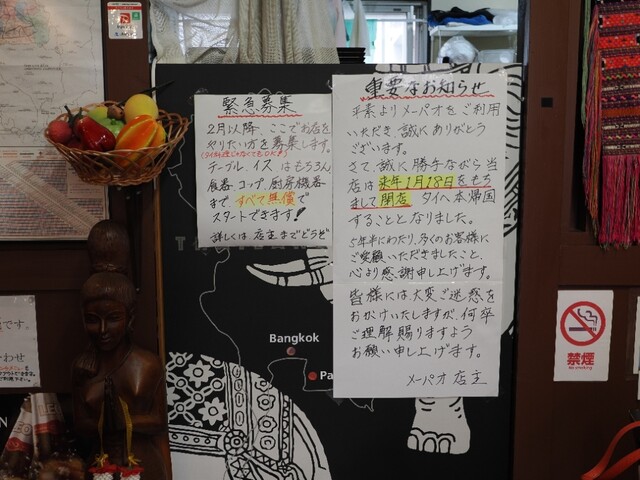 緊急募集
2月以降、ここでお店を
やりたい方を募集します。
(タイ料理じゃなくてもOKです)
テーブル、イス はもちろん、
食器、コップ、厨房機器
まで、すべて無償で
スタートできます!
詳しくは 店主までどうぞ
重要なお知らせ
平素よりメーパオをご利用
いただき、誠にありがとう
ございます。
さて、誠に勝手ながら当
店は来年1月18日をもち
まして閉店、タイへ本帰国
することとなりました。
5年半にわたり、多くのお客様に
ご愛顧いただきましたこと、
心より感謝申し上げます。
皆様には大変ご迷惑を
おかけいたしますが、何卒
ご理解賜りますよう
お願い申し上げます。
メーパオ 店主
Bangkok
Pa
禁煙
No smoking
です。
わせ